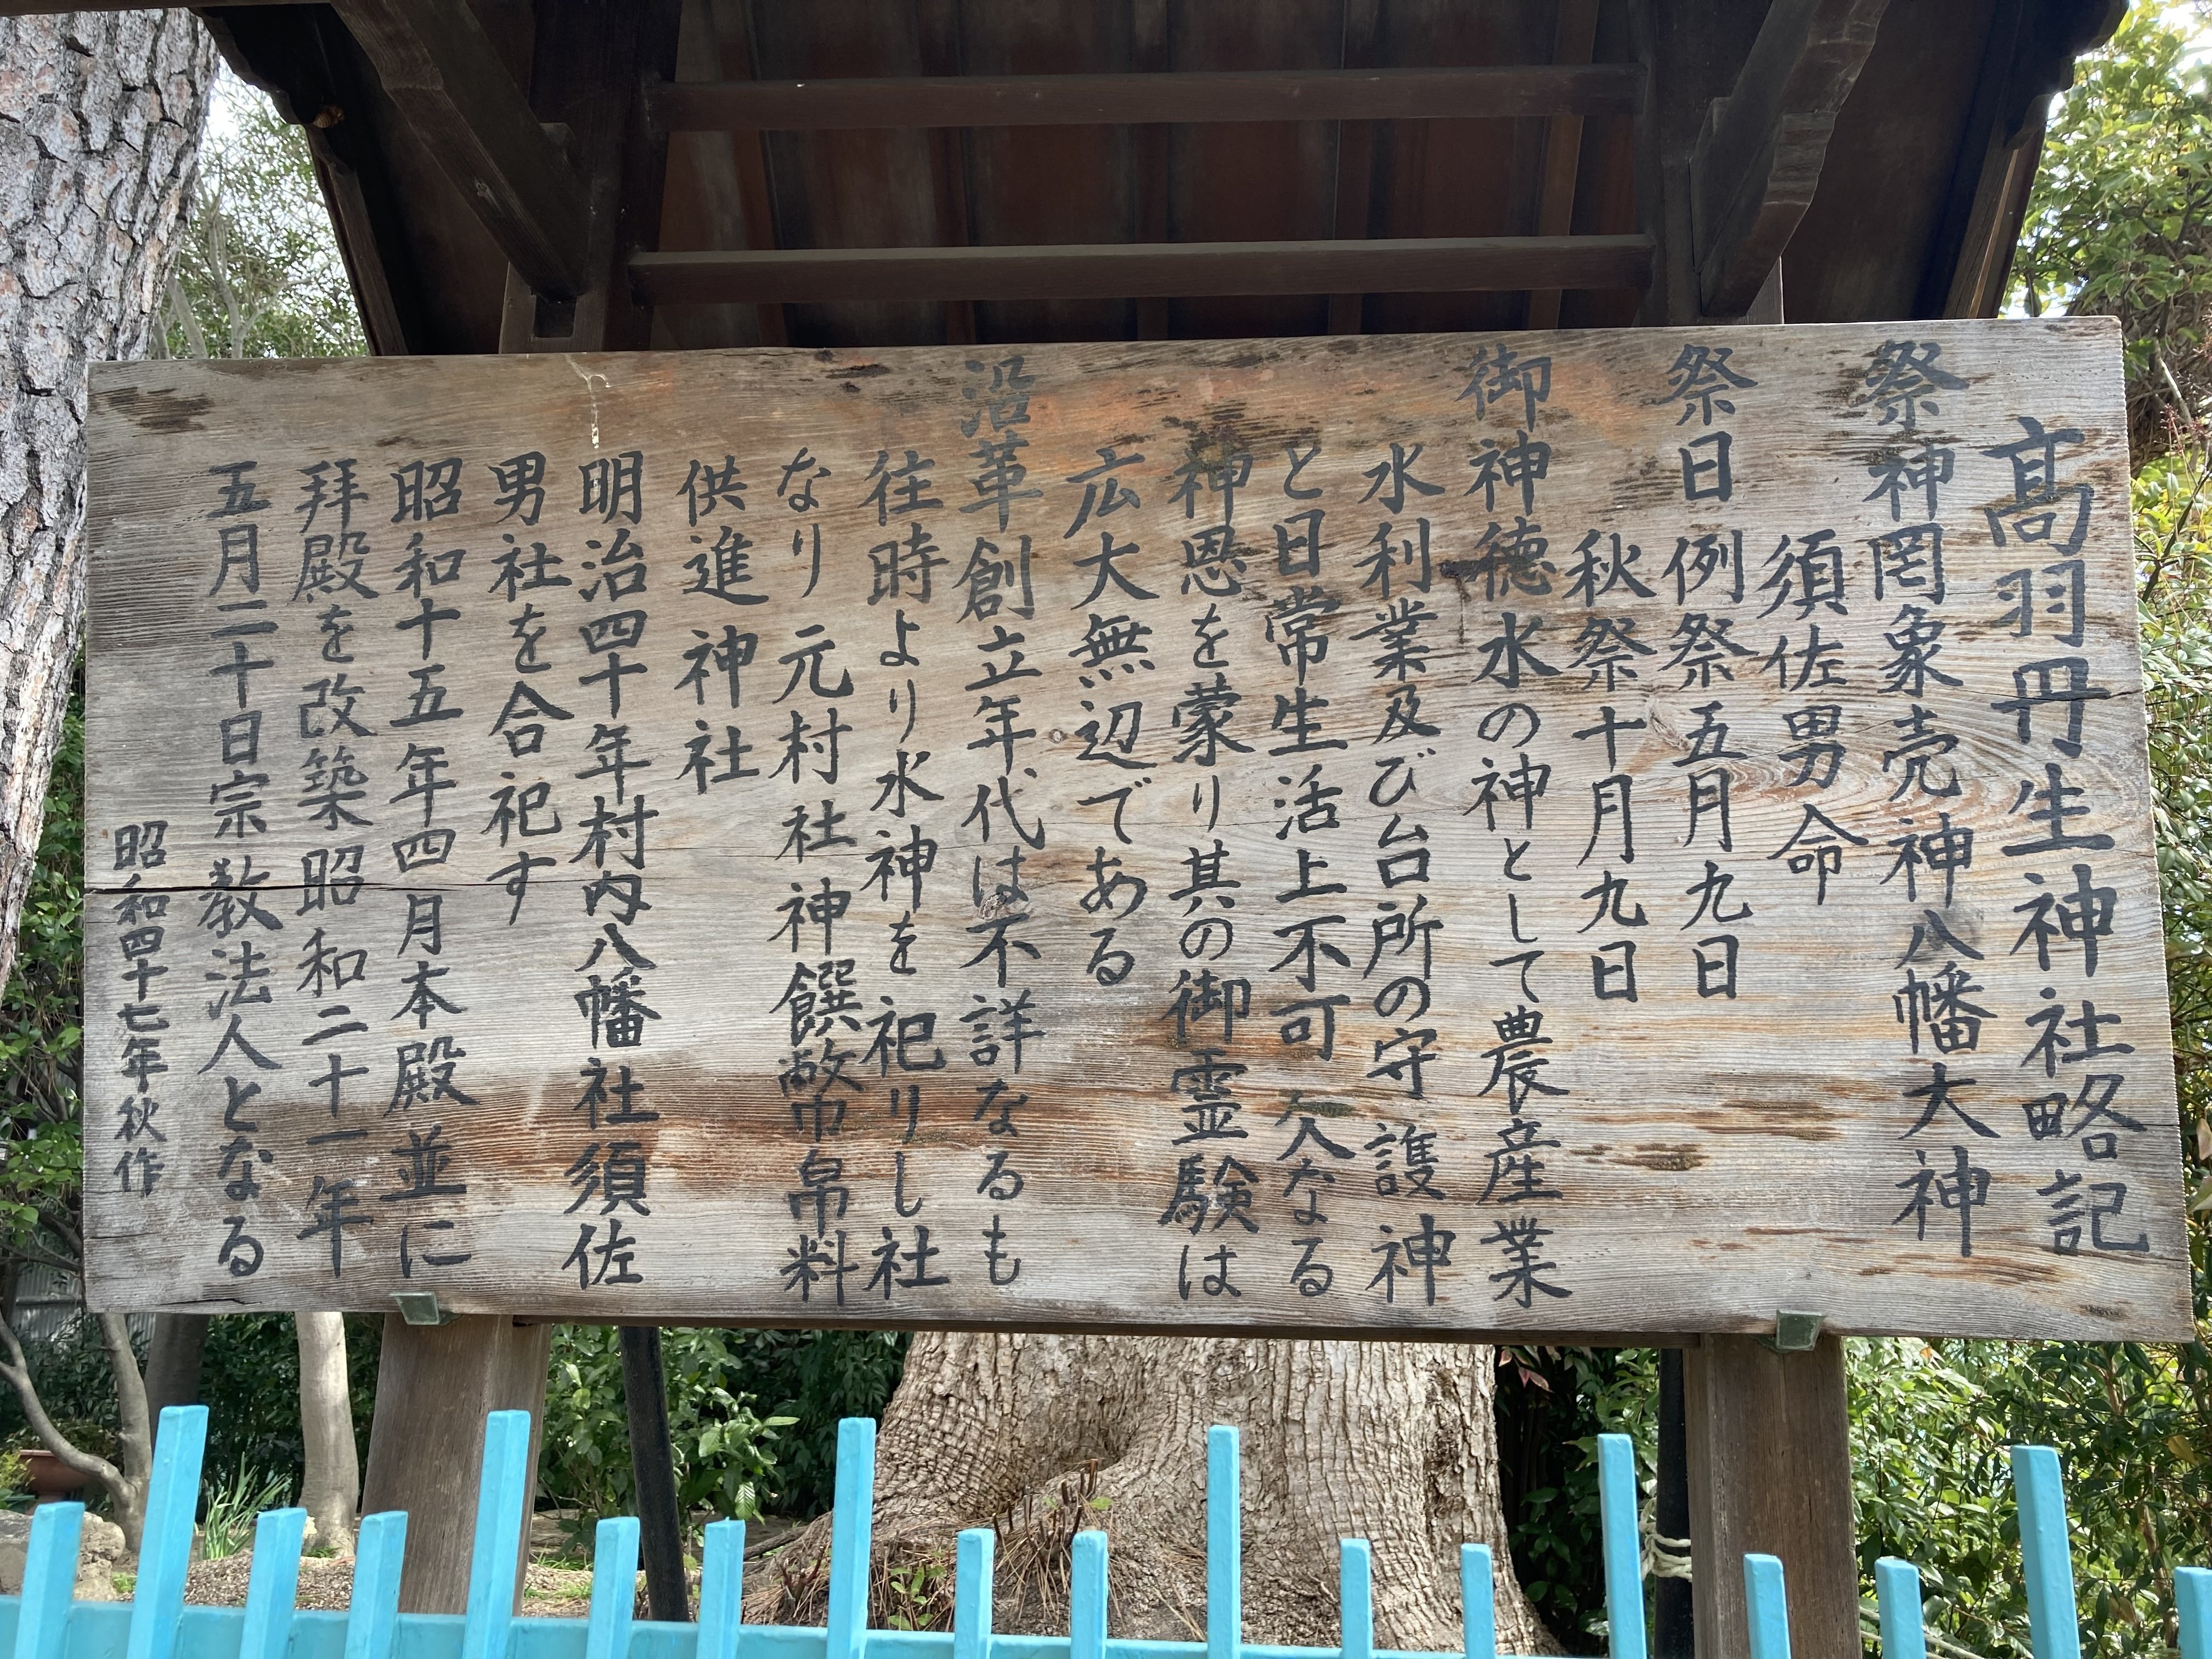 髙羽丹生神社略記
祭神罔象売神八幡大神
須佐男命
祭日例祭五月九日
秋祭十月九日
御神徳水の神として農産業
水利業及び台所の守護神
と日常生活上不可欠なる
神恩を蒙り其の御霊験は
広大無辺である
沿革創立年代は不詳なるも
往時より水神を祀りし社
なり元村社神饌幣帛料
供進神社
明治四十年村内八幡社須佐
男社を合祀す
昭和十五年四月本殿並に
拝殿を改築昭和二十一年
五月二十日宗教法人となる
昭和四十七年秋作